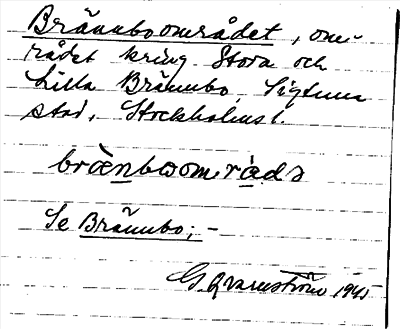 Brännboområdet, om-
rådet kring Stora och
Lilla Brännbo, Sigtuna
stad, Stockholms l.
brä̀nboområ̀də
Se Brännbo; -
G. Qvarnström 1945